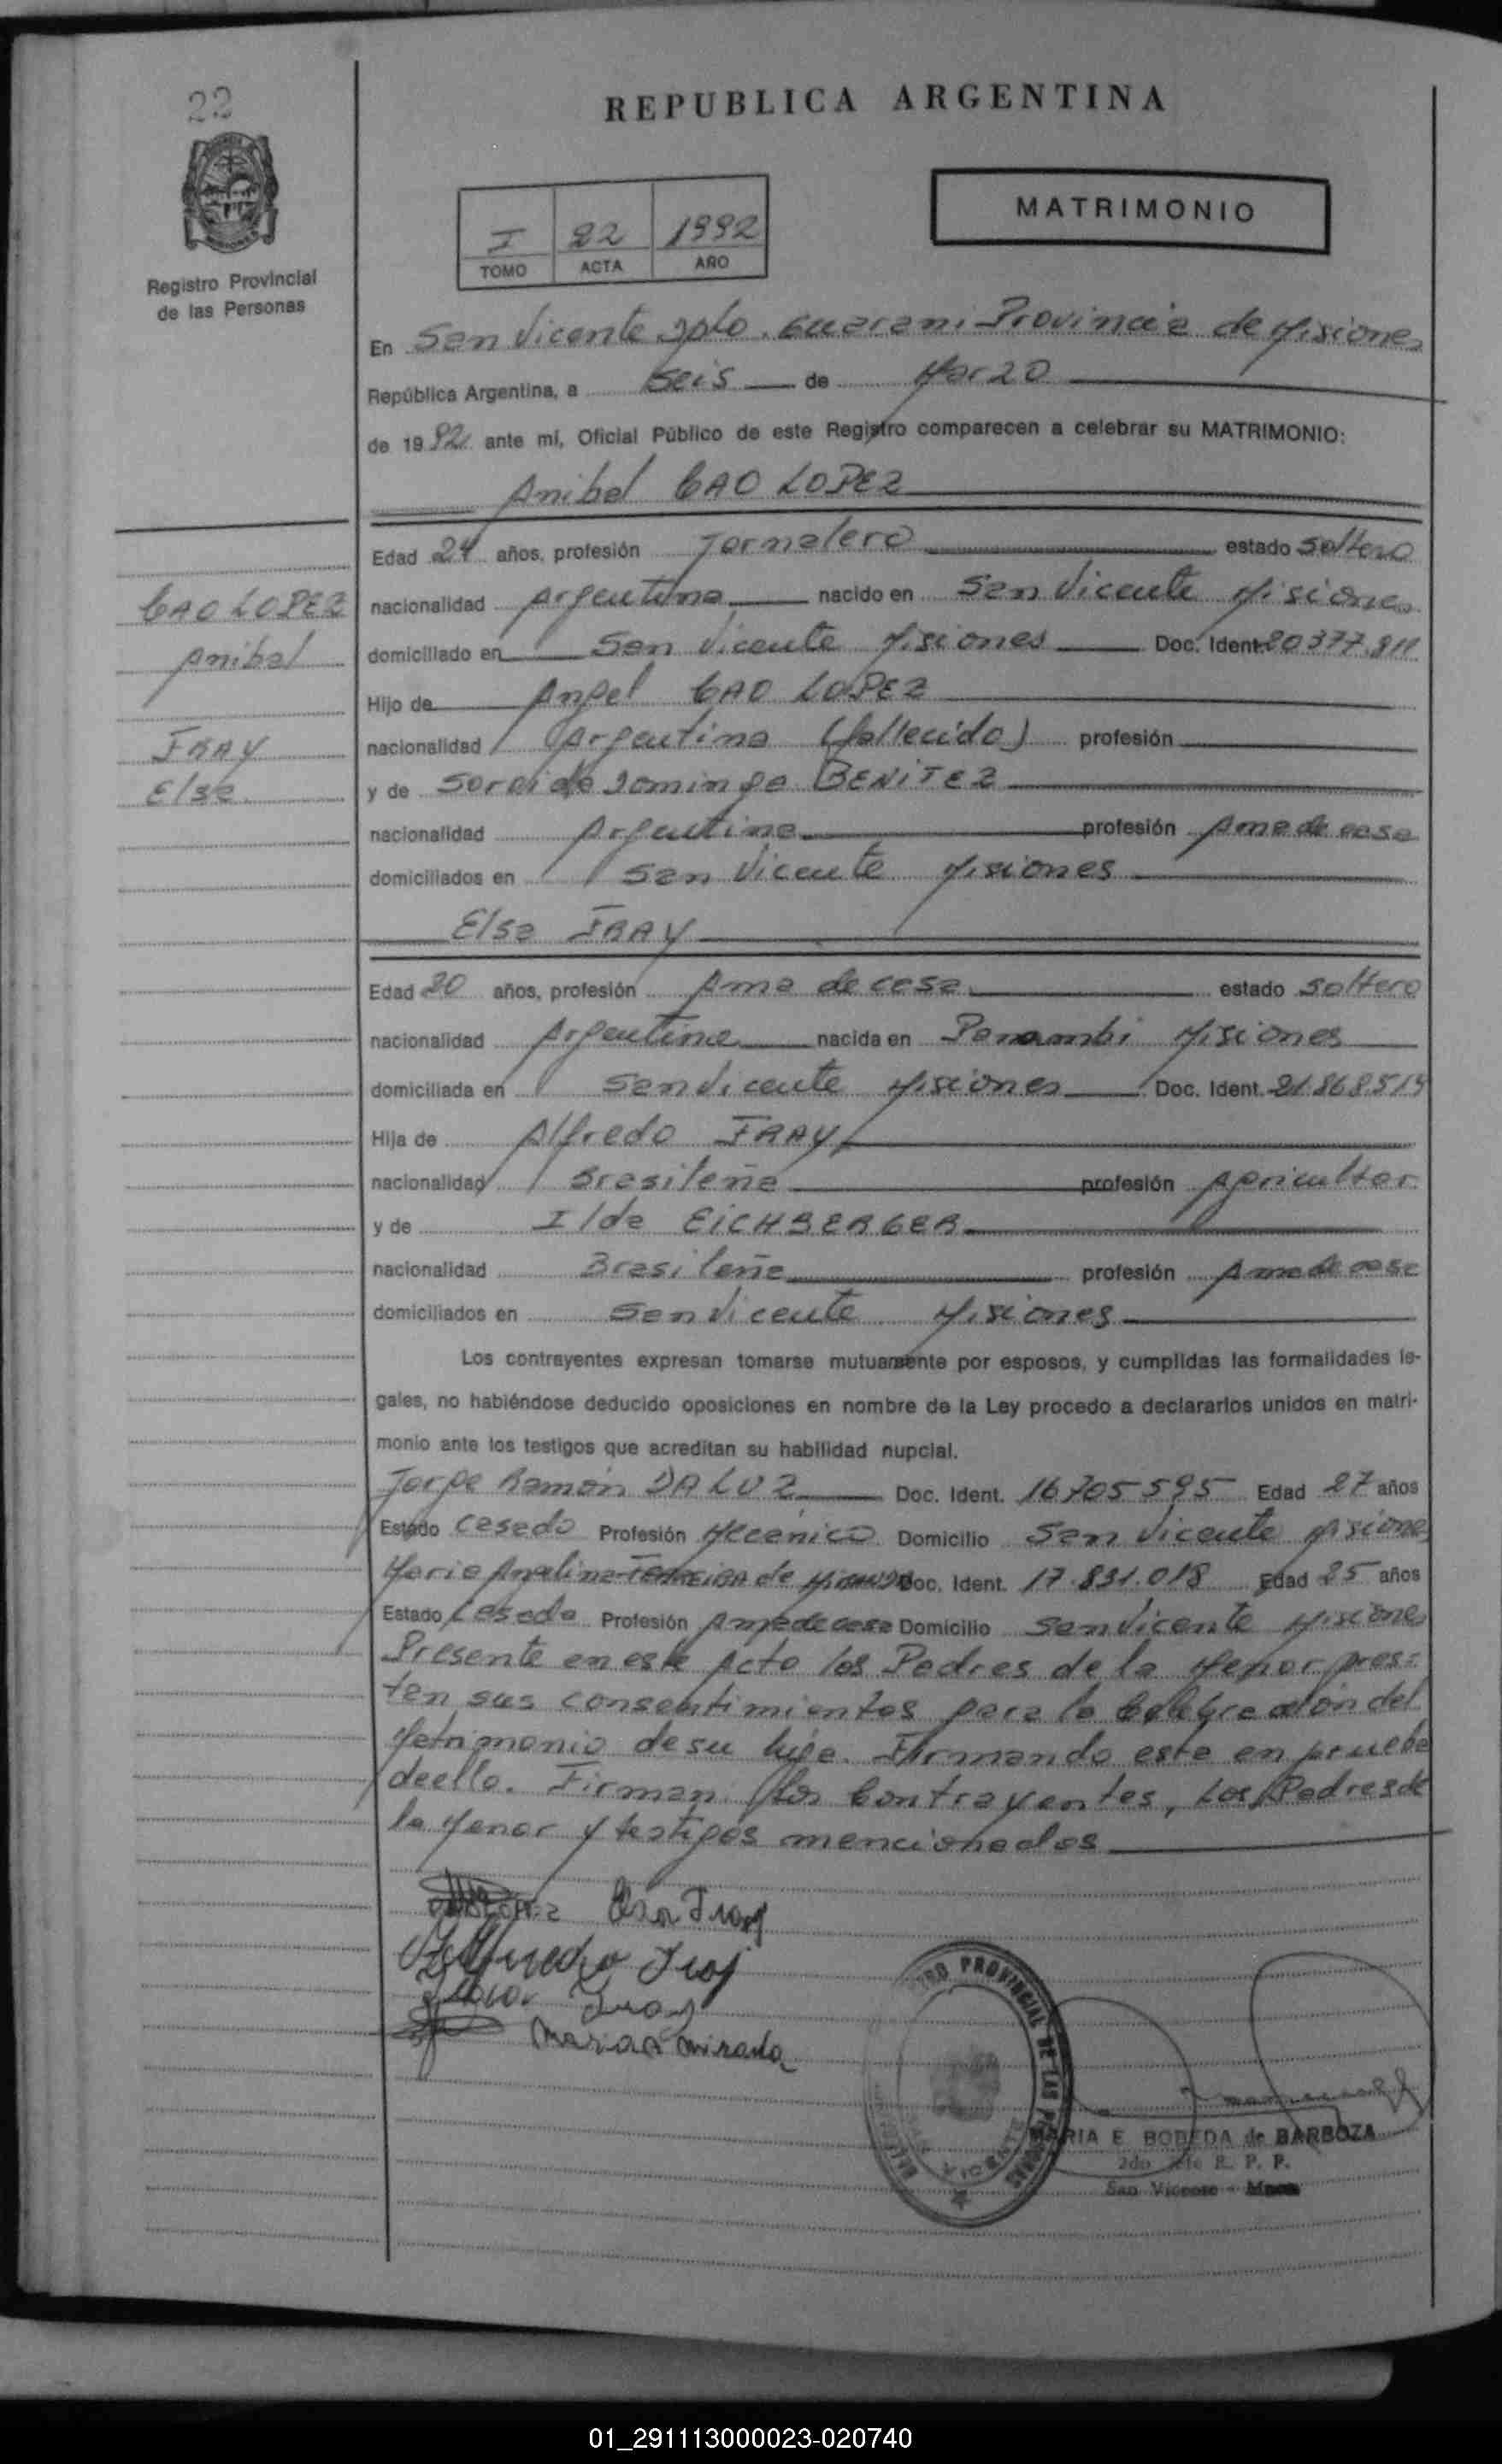 22
REPUBLICA ARGENTINA
MATRIMONIO
I 22 1992
TOMO ACTA AÑO
Registro Provincial
de las Personas
En San Vicente Dpto. Guarani Provincia de Misiones
República Argentina, a Seis de Marzo
de 1992 ante mí, Oficial Público de este Registro comparecen a celebrar su MATRIMONIO:
Anibal CAO LOPEZ
Edad 24 años, profesión Jornalero estado Soltero
CAO LOPEZ
Anibal
FRAY
Elsa
nacionalidad Argentina nacido en San Vicente Misiones
domiciliado en San Vicente Misiones Doc. Ident. 20377.811
Hijo de Angel CAO LOPEZ
nacionalidad Argentina (fallecido) profesión
y de Dominga BENITEZ
nacionalidad Argentina profesión Ama de casa
domiciliados en San Vicente Misiones
Elsa FRAY
Edad 20 años, profesión Ama de casa estado Soltero
nacionalidad Argentina nacida en Panambi Misiones
domiciliada en San Vicente Misiones Doc. Ident. 21.868.519
Hija de Alfredo FRAY
nacionalidad Brasileña profesión Agricultor
y de Ilda EICHBERGER
nacionalidad Brasileña profesión Ama de casa
domiciliados en San Vicente Misiones
Los contrayentes expresan tomarse mutuamente por esposos, y cumplidas las formalidades le-
gales, no habiéndose deducido oposiciones en nombre de la Ley procedo a declararlos unidos en matri-
monio ante los testigos que acreditan su habilidad nupcial.
Jorge Ramón DA LUZ Doc. Ident. 16705595 Edad 27 años
Estado Casado Profesión Mecánico Domicilio San Vicente Misiones
Maria de Doc. Ident. 17.831.018 Edad 25 años
Estado Casada Profesión Ama de casa Domicilio San Vicente Misiones
Presente en este Acto los Padres de la Menor pres=
tan sus consentimientos para la Celebración del
Matrimonio de su hija. Firmando este en prueba
de ello. Firman los Contrayentes, Los Padres de
la Menor y testigos mencionados
Elsa Fray
Alfredo Fray
Fray
Maria A miranda
REGISTRO PROVINCIAL DE LAS PERSONAS
SAN VICENTE
MARIA E BOBEDA de BARBOZA
2do Jefe R. P. P.
San Vicente - Mnes
01_291113000023-020740